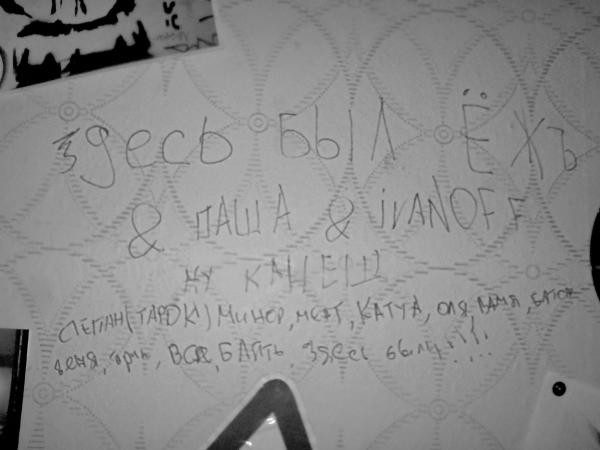 здесь БЫЛ ЁХЪ
& ПАША & iVANOFF
НУ КАНЕШ
СТЕПАН(ТАРОК) Минер, мент, КАТУА, ОЛЯ, ВАНЯ,
женя, ВСЕ, здесь были!!!...